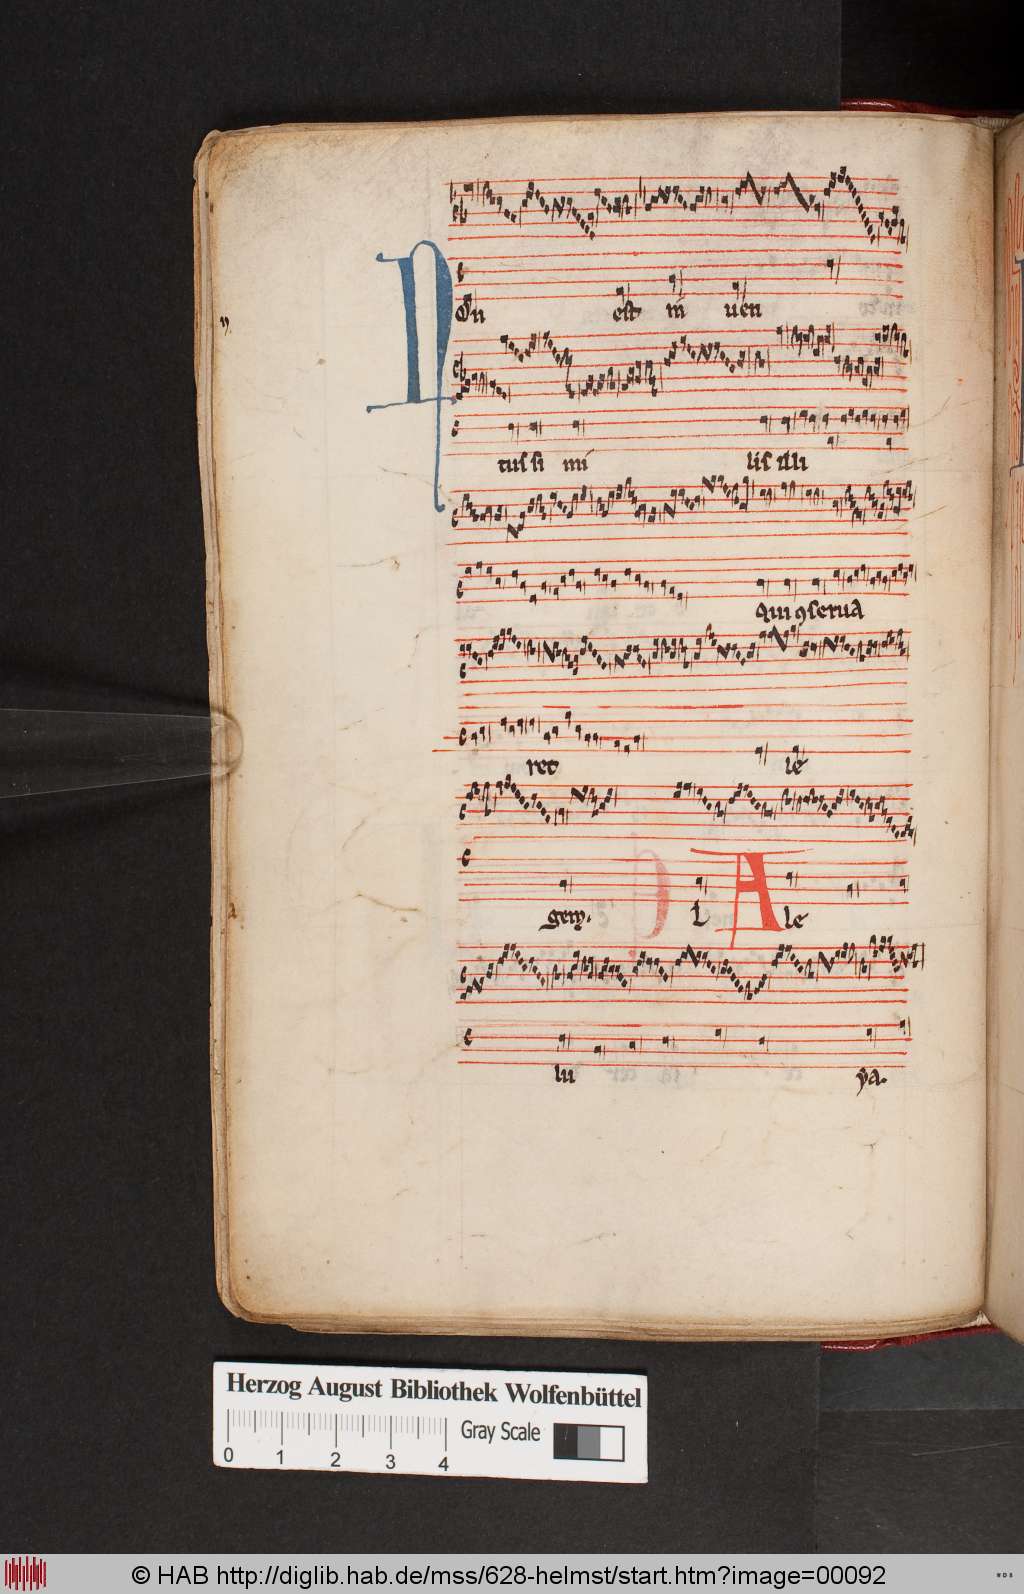 NOn est in uen
tus si mi lis illi
Qui ꝯserua
ret le
gem. L Ale
lu ya.
Herzog August Bibliothek Wolfenbüttel
Gray Scale
0 1 2 3 4
© HAB http://diglib.hab.de/mss/628-helmst/start.htm?image=00092